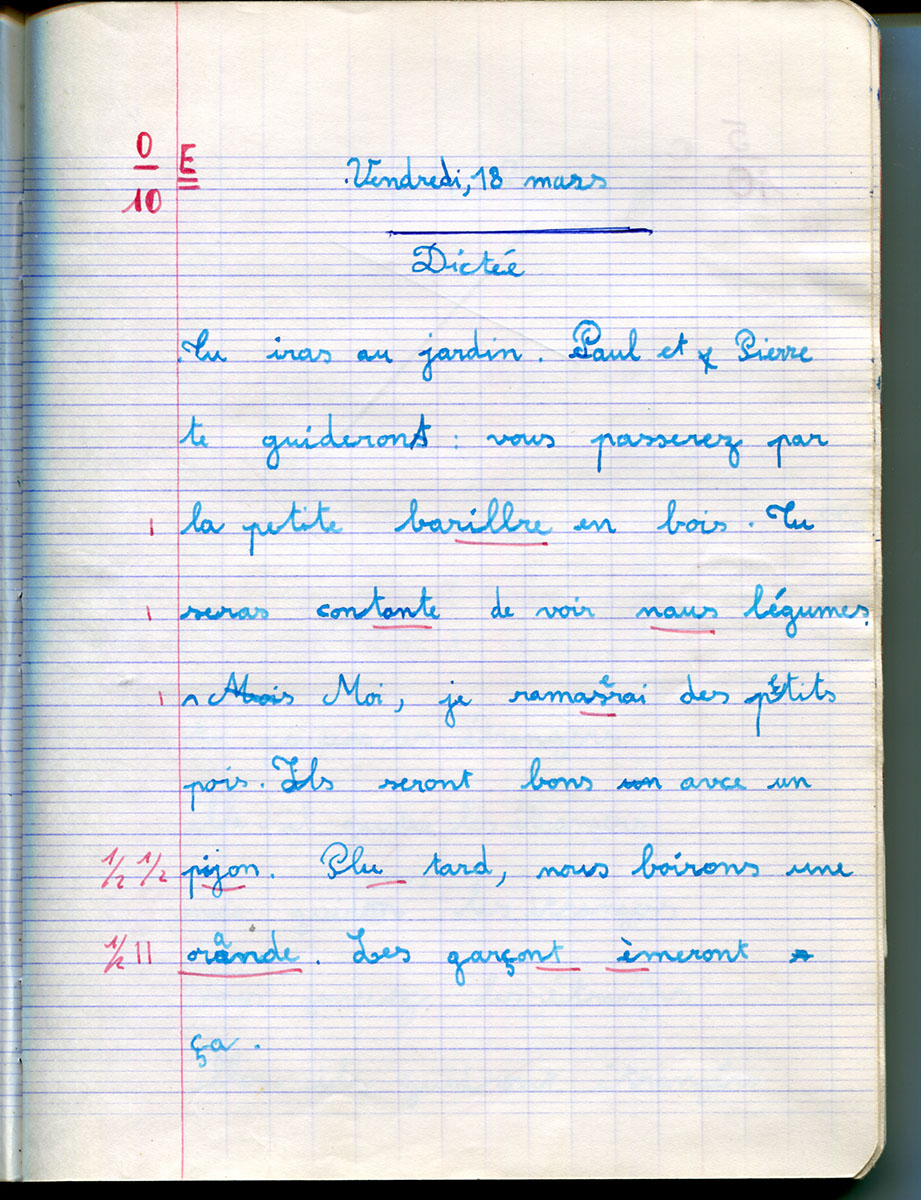 0/10 E
Vendredi, 18 mars
Dictée
Tu iras au jardin. Paul et Pierre
te guideront : vous passerez par
1 la petite barillre en bois. Tu
1 seras contante de voir naus légumes.
1 Mais Moi, je ramaserai des petits
pois. Ils seront bons un avce un
1/2 1/2 pijon. Plu tard, nous boirons une
1/2 11 orande. Les garçont èmeront
ça.